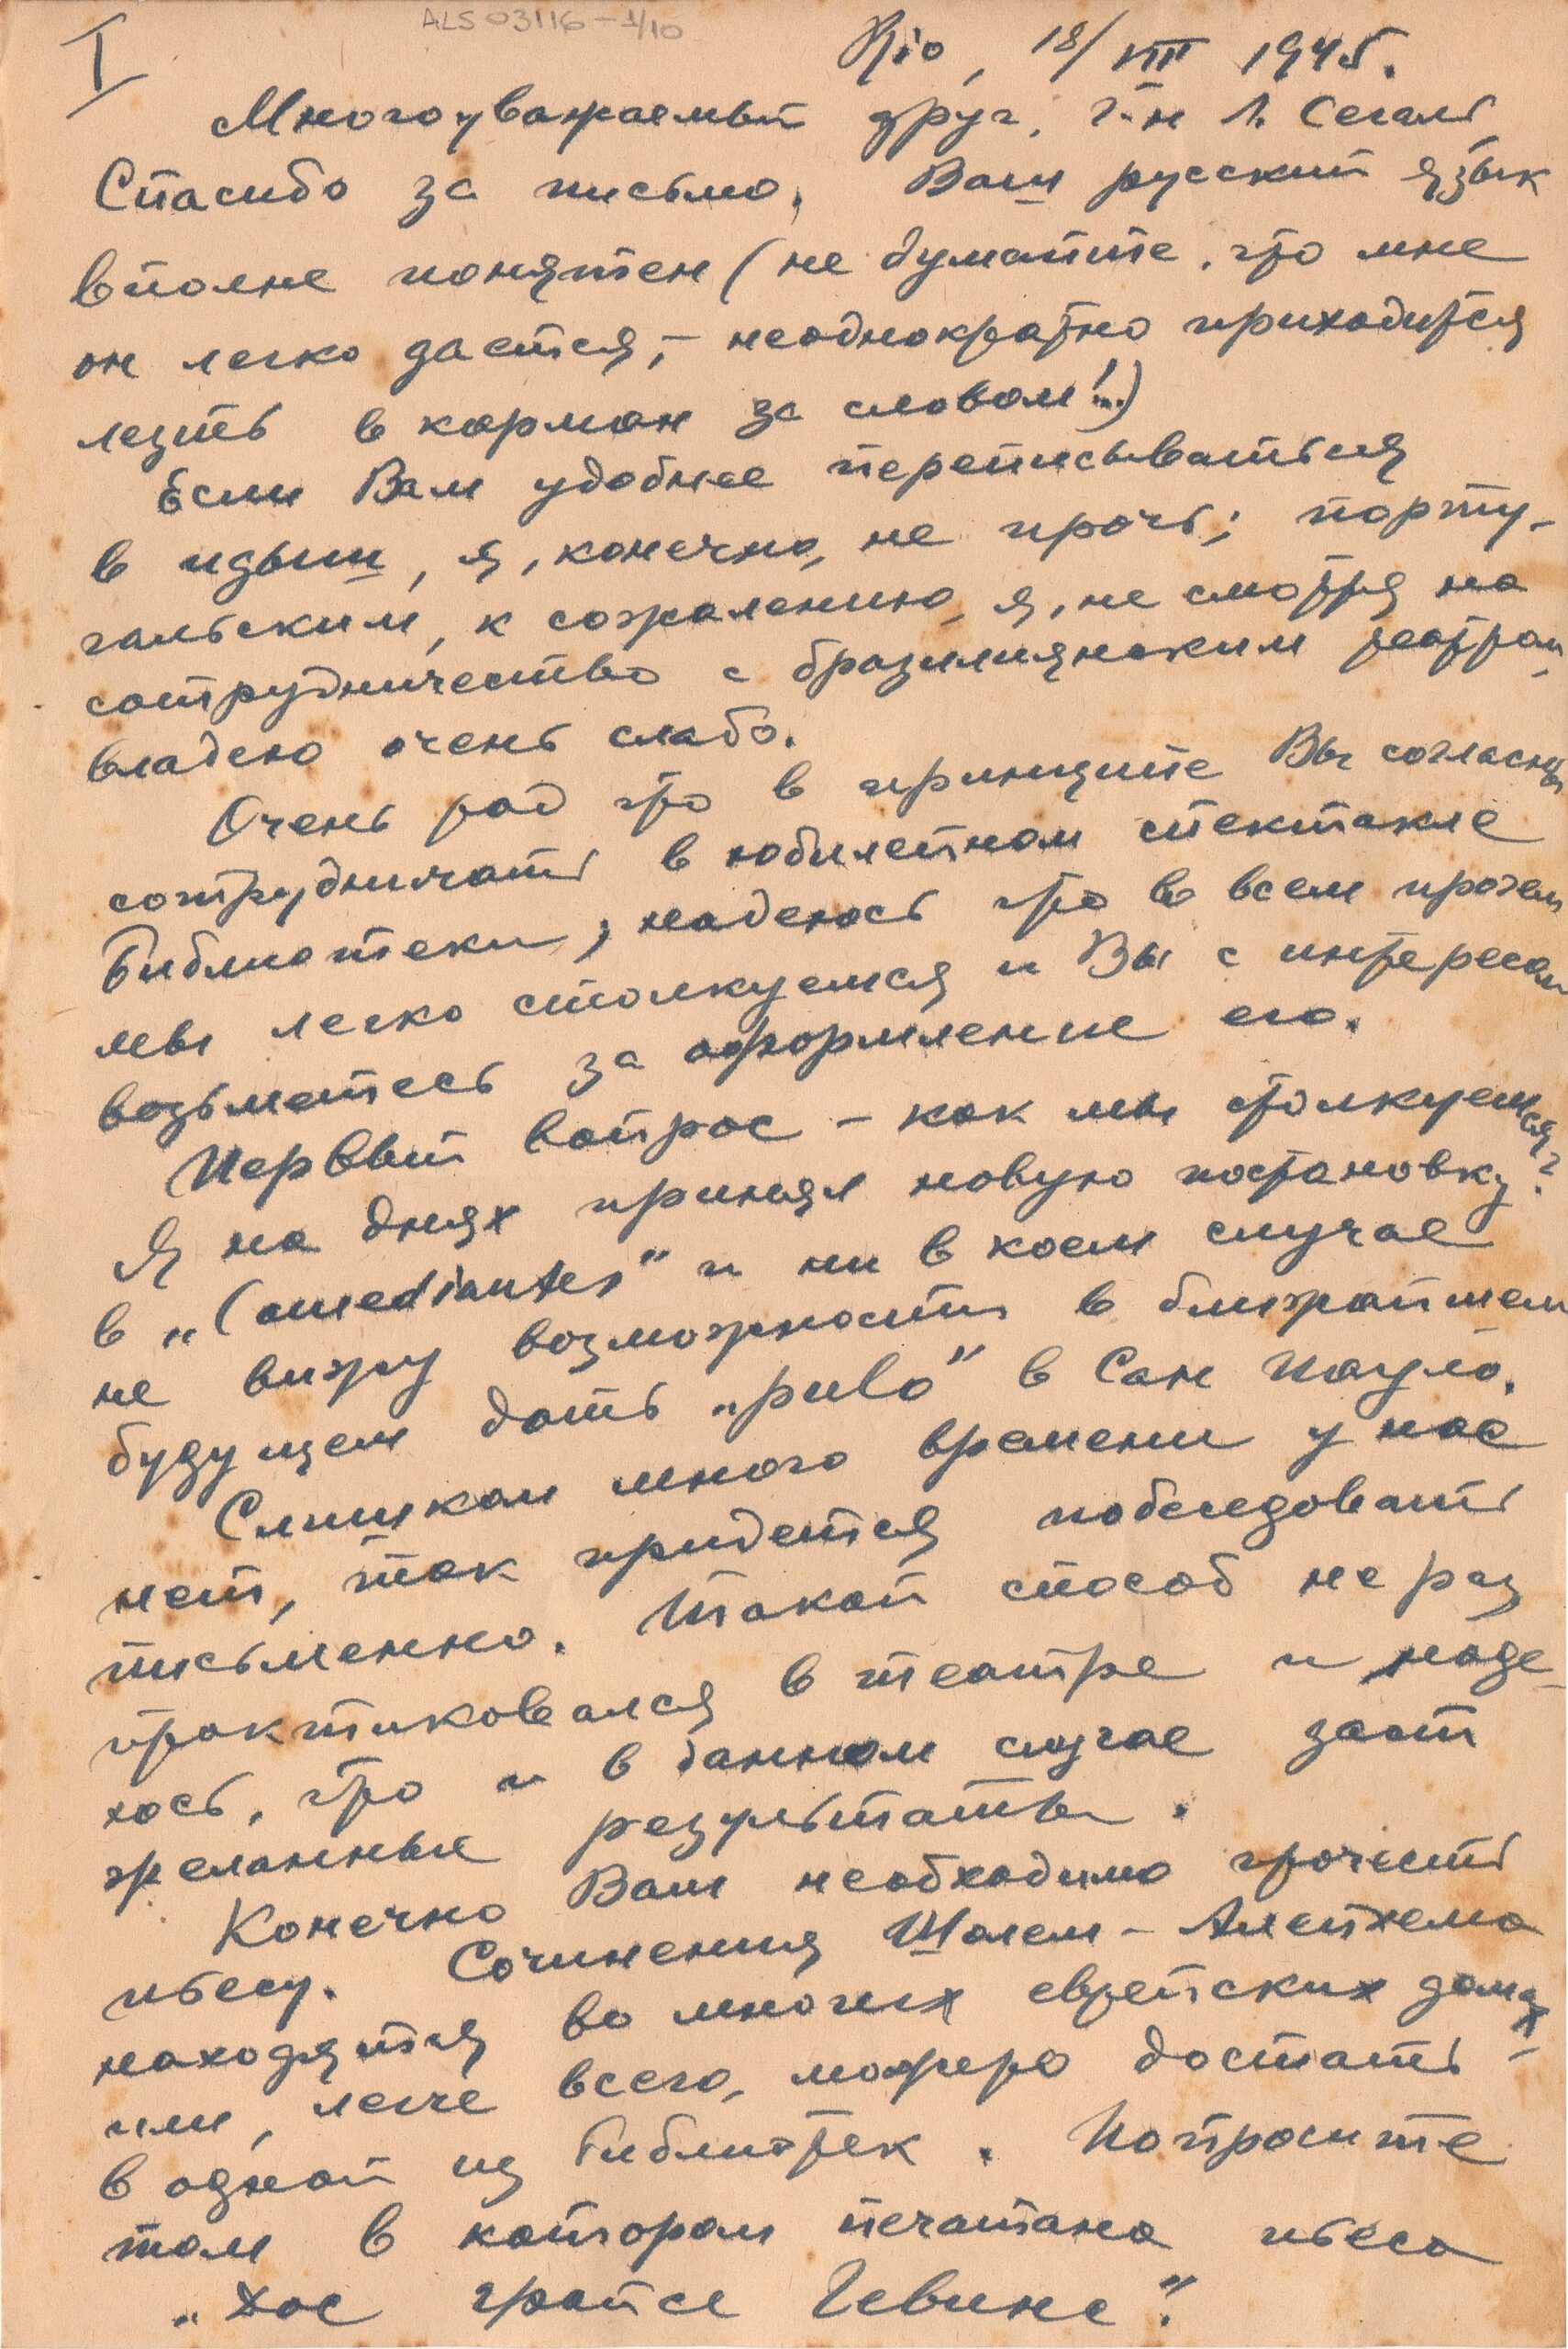 ALS 03116-1/10
I
Rio, 18/VIII 1945.
Многоуважаемый друг, г-н Л. Сегал,
Спасибо за письмо, Ваш русский язык
вполне понятен (не думайте, что мне
он легко дается, - неоднократно приходится
лезть в карман за словом!...)
Если Вам удобнее переписываться
в идыш, я, конечно, не прочь; порту-
гальским, к сожалению, я, не смотря на
сотрудничество с бразилиянским театром,
владею очень слабо.
Очень рад что в принципе Вы согласны
сотрудничать в юбилейном спектакле
Библиотеки, надеюсь что во всем прочем
мы легко столкуемся и Вы с интересом
возьметесь за оформление его.
Первый вопрос - как мы столкуемся?
Я на днях принял новую постановку
в „Comediantes" и ни в коем случае
не вижу возможности в ближайшем
будущем дать „pulo" в Сан Пауло.
Слишком много времени у нас
нет, так придется побеседовать
письменно. Такой способ не раз
практиковался в театре и наде-
юсь, что и в данном случае даст
желанные результаты.
Конечно Вам необходимо прочесть
пьесу. Сочинения Шолем-Алейхема
находятся во многих еврейских домах -
или, легче всего, можно достать
в одной из библиотек. Попросите
том в котором печатана пьеса
„Дос гройсе Гевинс".